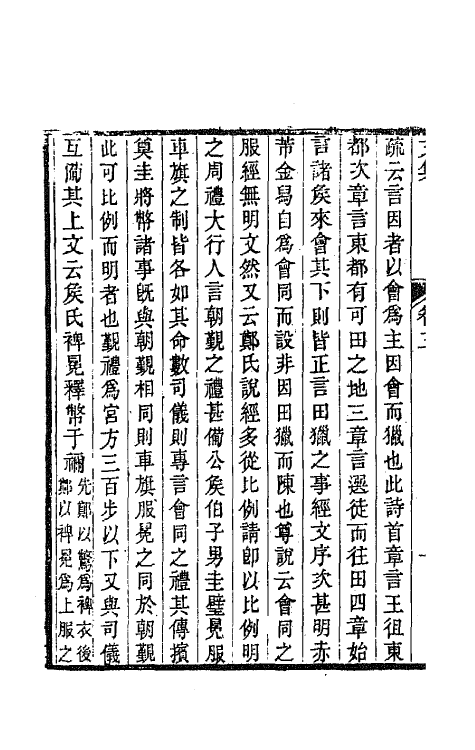 文集　卷三　一
疏云言因者以會爲主因會而獵也此詩首章言王徂東
都次章言東都有可田之地三章言選徒而往田四章始
言諸矦來會其下則皆正言田獵之事經文序次甚明赤
芾金舄自爲會同而設非因田獵而陳也尊說云會同之
服經無明文然又云鄭氏說經多從比例請卽以比例明
之周禮大行人言朝覲之禮甚僃公矦伯子男圭璧冕服
車旗之制皆各如其命數司儀則專言會同之禮其傳擯
奠圭將幣諸事旣與朝覲相同則車旗服冕之同於朝覲
此可比例而明者也覲禮爲宮方三百步以下又與司儀
互僃其上文云矦氏裨冕釋幣于禰先鄭以鷩爲裨衣後
鄭以裨冕爲上服之